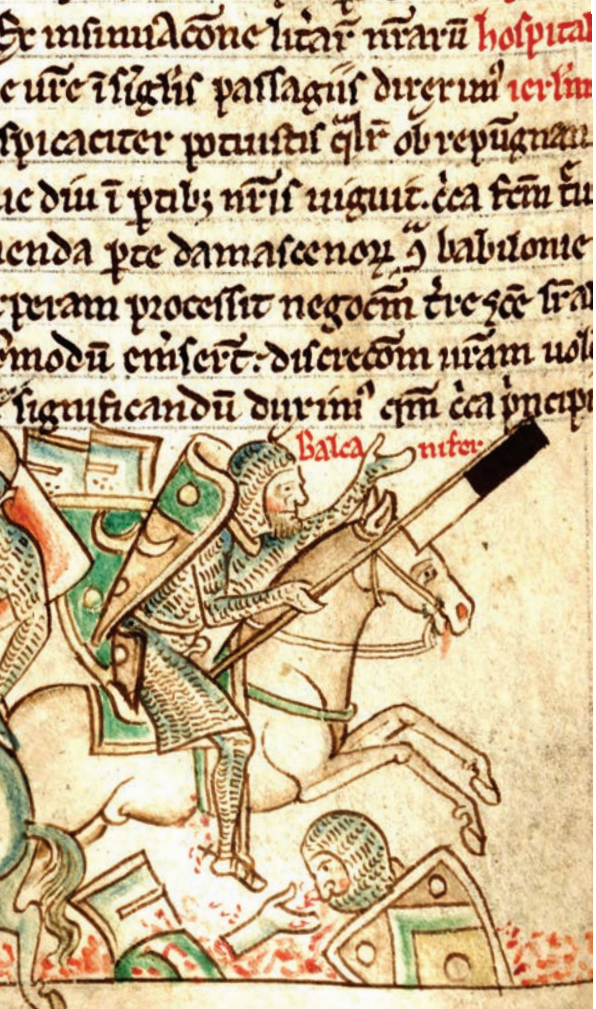 Ex insinuacōne litar̄ nr̄arū hospital
e ur̄e ī sīgl̄is passagiis direxim⁹ ierl̄im
spicaciter potuistis qͣlr̄ ob repūgnan
ue diu ī ꝑtib; nr̄is uiguit. c̄ca fcm̄
ienda ꝑte damascenoꝝ babilonie
peram processit negocm̄ tr̄e sce
modū discrecōm ur̄am uol
significandū duxim⁹ qm̄ c̄ca pͥncipi
Balca nifer